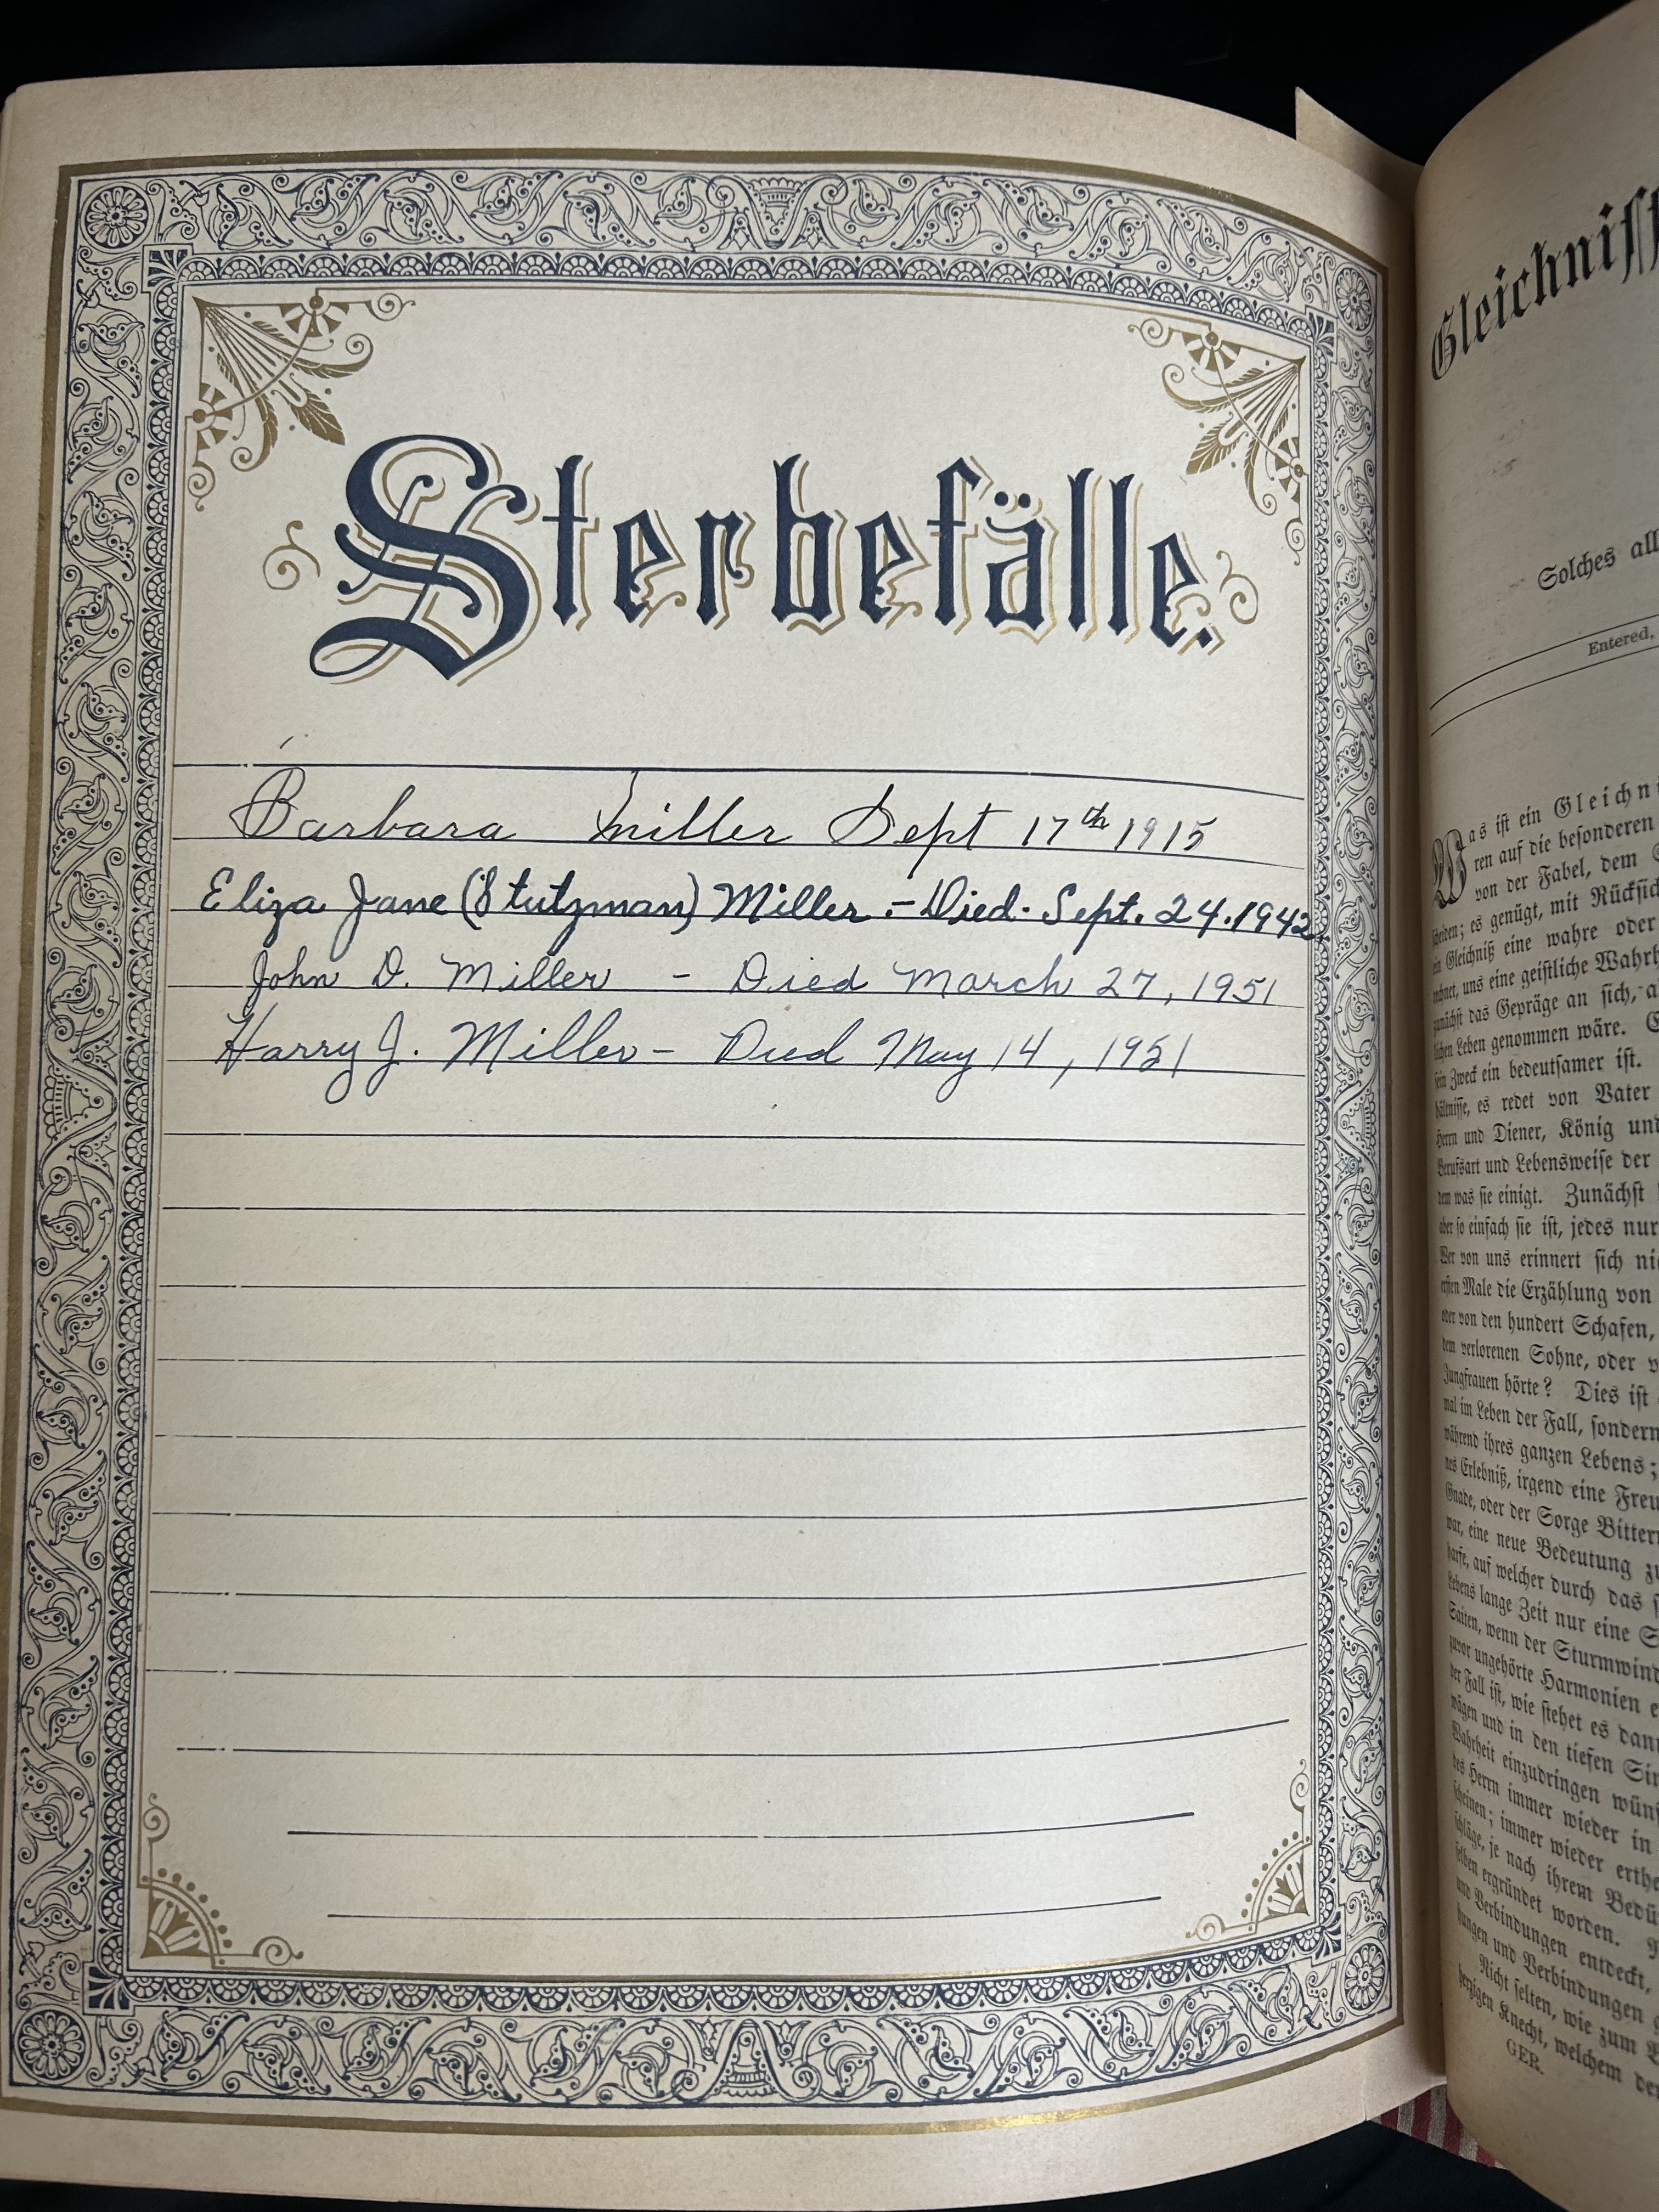 Sterbefälle.
Barbara Miller Sept 17th 1915
Eliza Jane (Stutzman) Miller.- Died. Sept. 24. 1942.
John D. Miller - Died March 27, 1951
Harry J. Miller - Died May 14, 1951
Solches all
Entered,
Was ist ein Gleichni
ren auf die besonderen
von der Fabel, dem
scheiden; es genügt, mit Rücksich
ein Gleichniß eine wahre oder
uns eine geistliche Wahrh
zunächst das Gepräge an sich, a
lichen Leben genommen wäre.
sein Zweck ein bedeutsamer ist.
hältnisse, es redet von Vater
Herrn und Diener, König und
Berufsart und Lebensweise der
dem was sie einigt. Zunächst
aber so einfach sie ist, jedes nur
Wer von uns erinnert sich ni
ersten Male die Erzählung von
oder von den hundert Schafen,
dem verlorenen Sohne, oder v
Jungfrauen hörte? Dies ist
mal im Leben der Fall, sondern
während ihres ganzen Lebens;
des Erlebniß, irgend eine Freu
Gnade, oder der Sorge Bitter
war, eine neue Bedeutung zu
harfe, auf welcher durch das
Lebens lange Zeit nur eine S
Saiten, wenn der Sturmwind
zuvor ungehörte Harmonien e
der Fall ist, wie stehet es dann
wägen und in den tiefen Sin
Wahrheit einzudringen wüns
des Herrn immer wieder in
scheinen; immer wieder erthe
schläge, je nach ihrem Bedü
selben ergründet worden.
und Verbindungen entdeckt,
hungen und Verbindungen g
Nicht selten, wie zum B
herzigen Knecht, welchem der
GER.